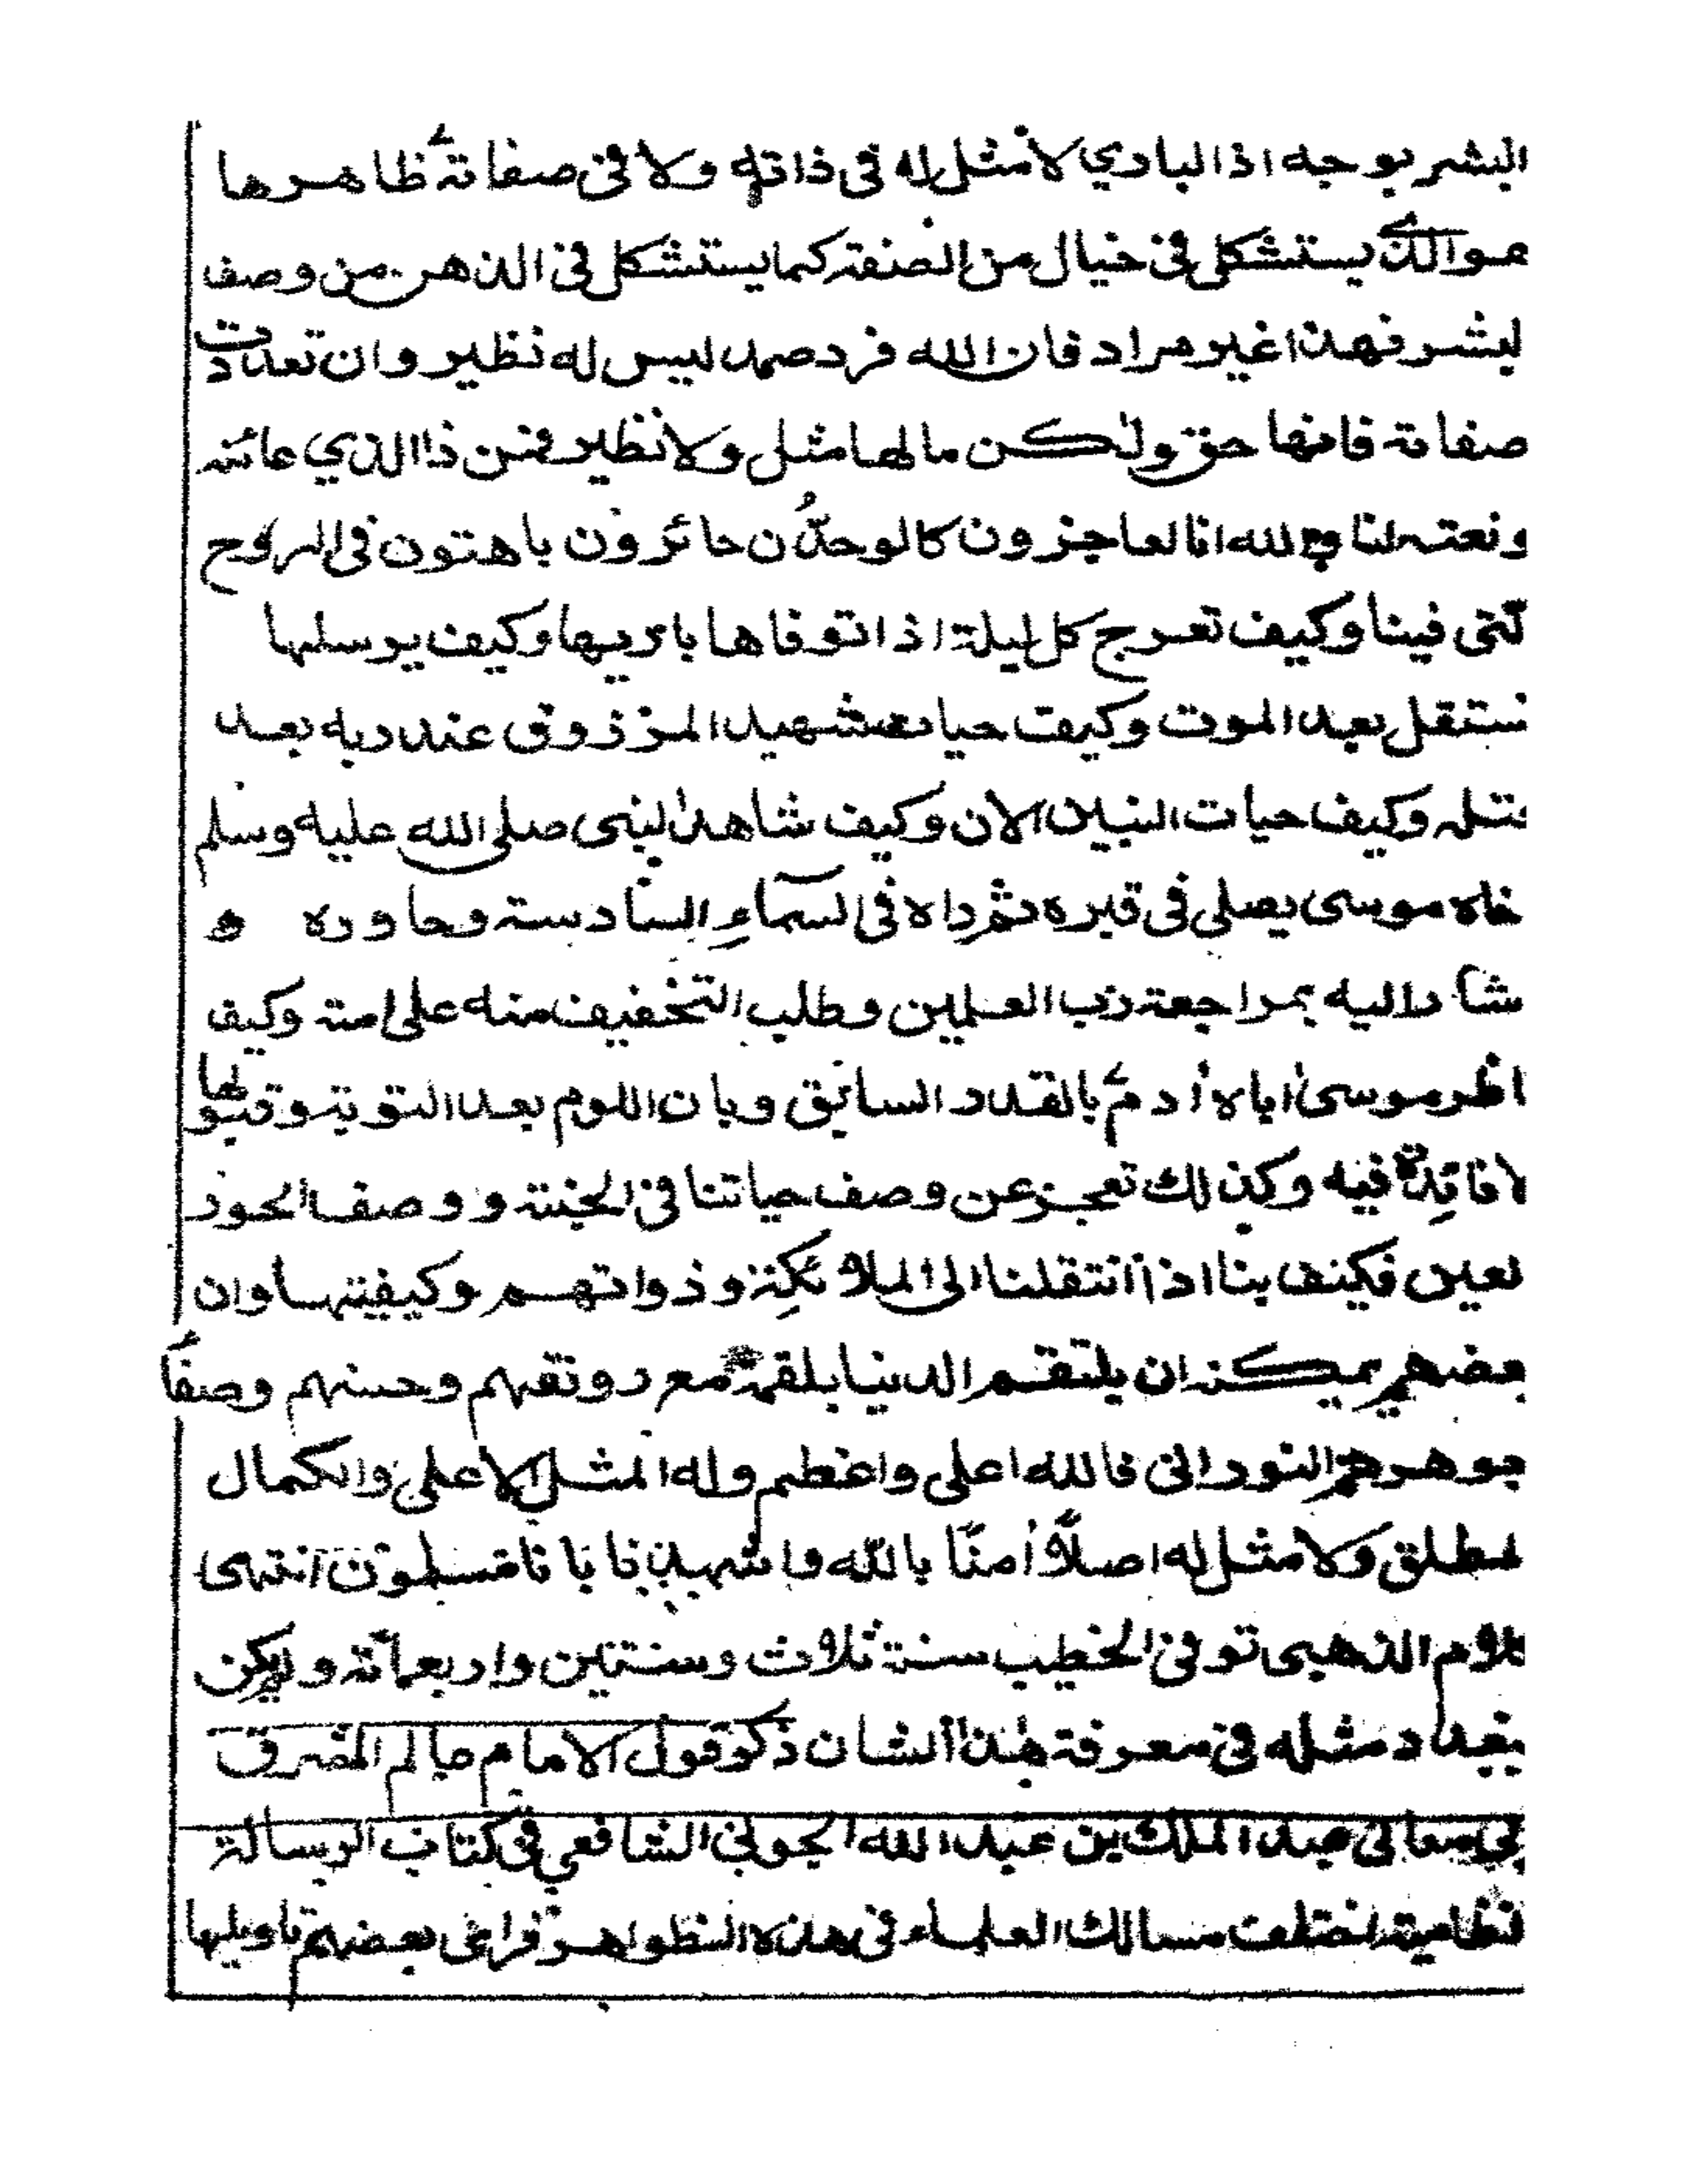 البشر بوجه اذ الباري لا مثل له في ذاته ولا في صفاته ظاهرها
هو الذي يستشكل في خيال من الصفة كما يستشكل في الذهن من وصف
لبشر فهذا غير مراد فان الله فرد صمد ليس له نظير وان تعددت
صفاته فانها حق ولكن ما لها مثل ولا نظير فمن ذا الذي عاينه
ونعته لنا والله انا لعاجزون كالو حدّون حائرون باهتون في الروح
لتي فينا وكيف تعرج كل ليلة اذا توفاها باريها وكيف يرسلها
تستقل بعد الموت وكيف حيات الشهيد المرزوق عند ربه بعد
قتله وكيف حيات النبين الان وكيف شاهد النبي صلى الله عليه وسلم
خاه موسى يصلي في قبره ثم راه في السماء السادسة وحاوره و
شار اليه بمراجعة رب العلمين وطلب التخفيف منه على امته وكيف
اظر موسى اباه أدم بالقدر السابق وبان اللوم بعد التوبة وقبولها
لا فائدة فيه وكذلك نعجز عن وصف حياتنا في الجنة ووصف الحور
لعين فكيف بنا اذا انتقلنا الى الملائكة وذواتهم وكيفيتها وان
بعضهم يمكن ان يلتقم الدنيا بلقمة مع رونقهم وحسنهم وصفا
جوهرهم النوراني فالله اعلى واعظم وله المثل الاعلى والكمال
لمطلق ولا مثل له اصلاً أمنّا بالله واشهد بانا مسلمون انتهى
لام الذهبي توفي الخطيب سنة ثلاث وستين واربعمائة ولم يكن
ببغداد مثله في معرفة هذا الشان ذكر قول الامام عالم المشرق
بي معالي عبد الملك بن عبد الله الجوني الشافعي في كتاب الرسالة
لنظامية اختلفت مسالك العلماء في هذه الظواهر فراى بعضهم تاويلها